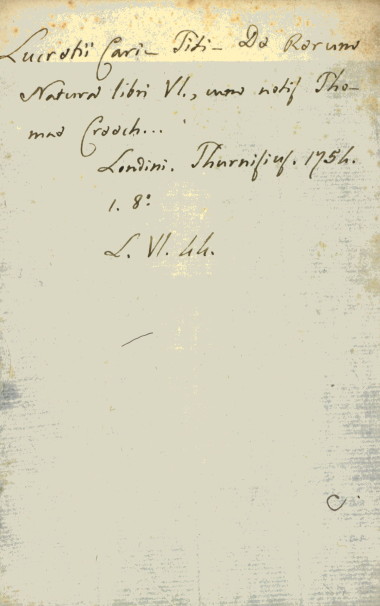 Lucretii Cari- Titi- De Rerum
Naturae libri VI., cum notis Tho-
mae Creech...
Londini. Thurnisius. 1754.
1. 8°
L. VI. 44.